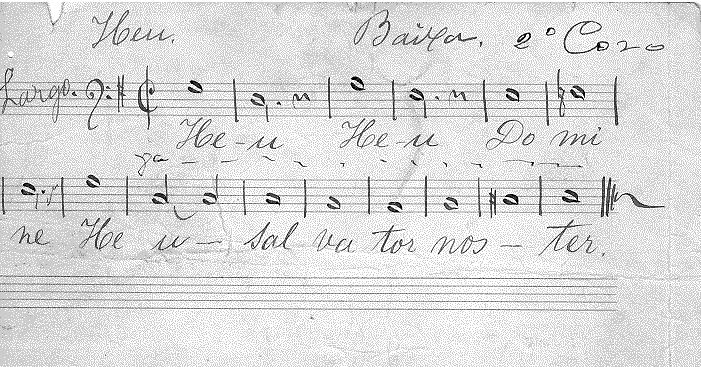 Heu. Baixa. 2º Coro
Largo.
He-u He-u Do mi
8ª
ne He u- sal va tor nos - ter.